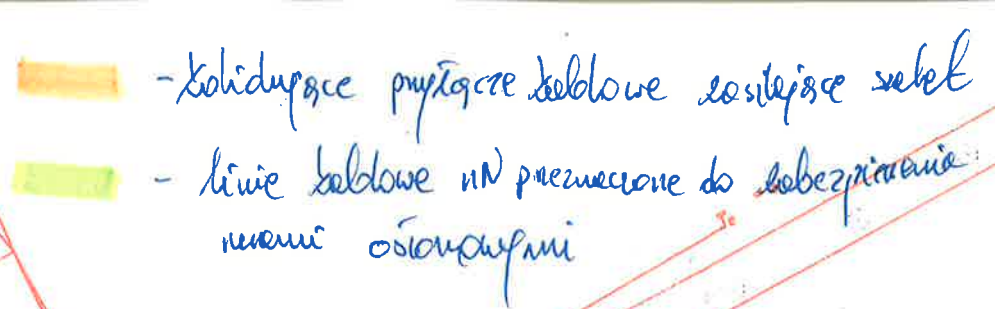 - kolidujące przyłącze kablowe zasilające szalet
- linie kablowe nN przeznaczone do zabezpieczenia
rurami osłonowymi